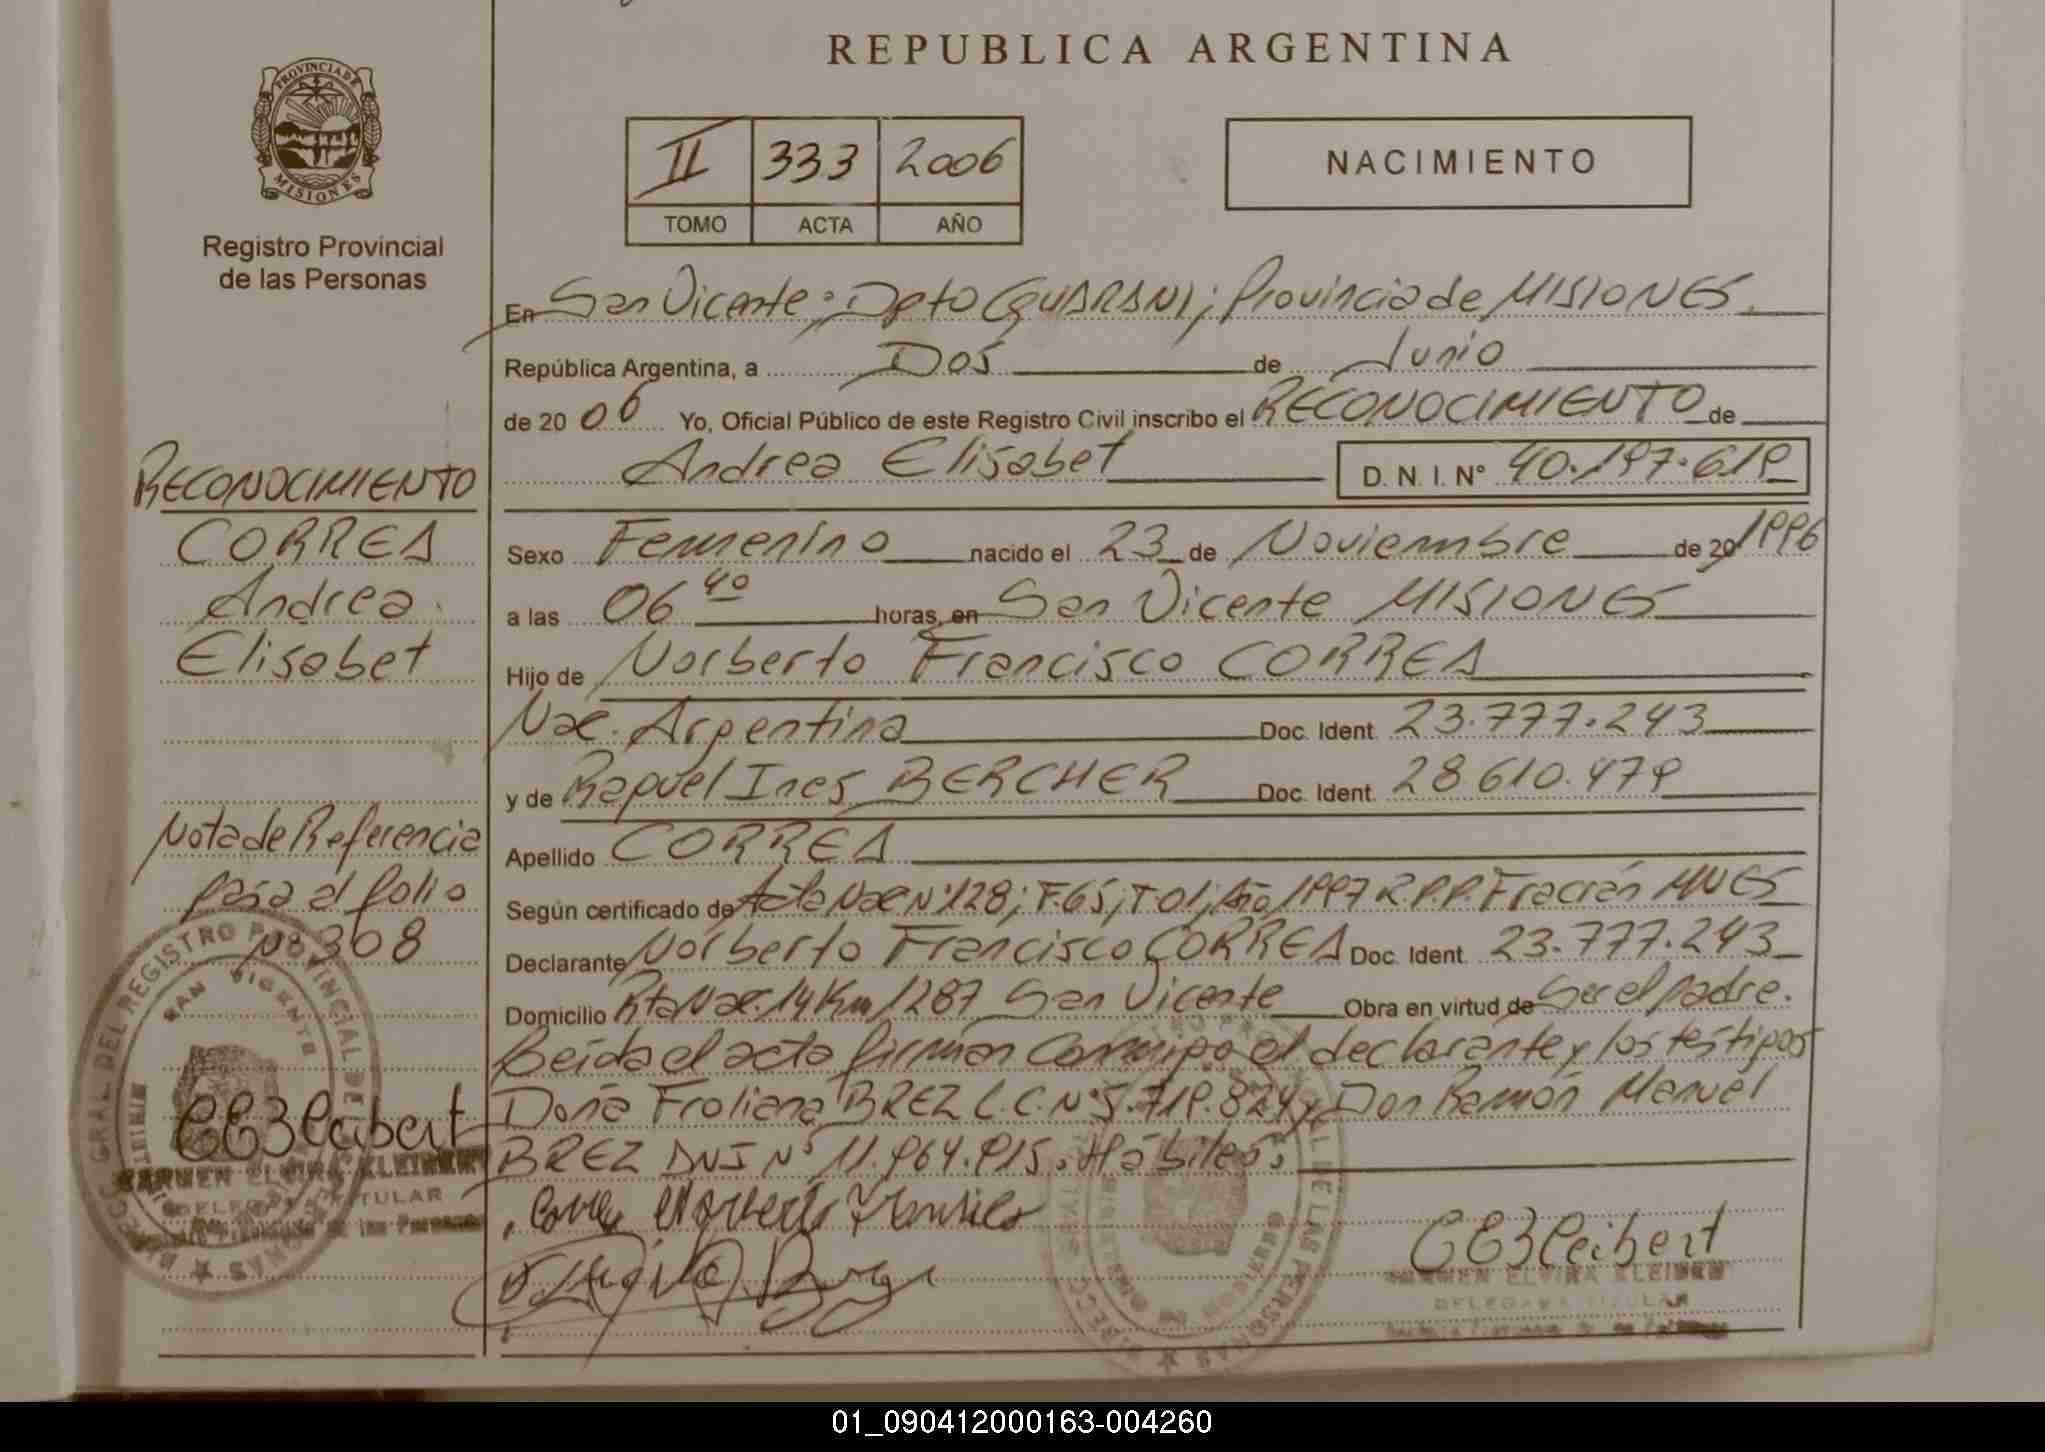 REPUBLICA ARGENTINA
PROVINCIA DE
MISIONES
Registro Provincial
de las Personas
II 333 2006
TOMO ACTA AÑO
NACIMIENTO
En San Vicente; Dpto GUARANI; Provincia de MISIONES.
República Argentina, a Dos de Junio
de 20 06 Yo, Oficial Público de este Registro Civil inscribo el RECONOCIMIENTO de
Andrea Elisabet D. N. I. Nº 40.197.619
Sexo Femenino nacido el 23 de Noviembre de 20 1996
a las 06 40 horas, en San Vicente MISIONES
Hijo de Norberto Francisco CORREA
Nac. Argentina Doc. Ident. 23.777.243
y de Raquel Ines BERCHER Doc. Ident. 28610.479
Apellido CORREA
Según certificado de Acta Nac Nº 128; F.65; T 01; Año 1997 R.P.P. Fracrán MNES
Declarante Norberto Francisco CORREA Doc. Ident. 23.777.243
Domicilio Rta Nac. 14 Km 1287 San Vicente Obra en virtud de Ser el padre.
Leida el acta firman conmigo el declarante y los testigos
Doña Froliana BREZ L.C. Nº 5.719.824 y Don Ramón Manuel
BREZ DNI Nº 11.964.915. Hábiles.
RECONOCIMIENTO
CORREA
Andrea
Elisabet
Nota de Referencia
pasa al folio
Nº 308
DIRECC. GRAL DEL REGISTRO PROVINCIAL DE LAS PERSONAS
SAN VICENTE
CARMEN ELVIRA KLEIBERT
DELEGADA TITULAR
de las Personas
Correa Norberto Francisco
CEKleibert
CARMEN ELVIRA KLEIBERT
DELEGADA TITULAR
01_090412000163-004260